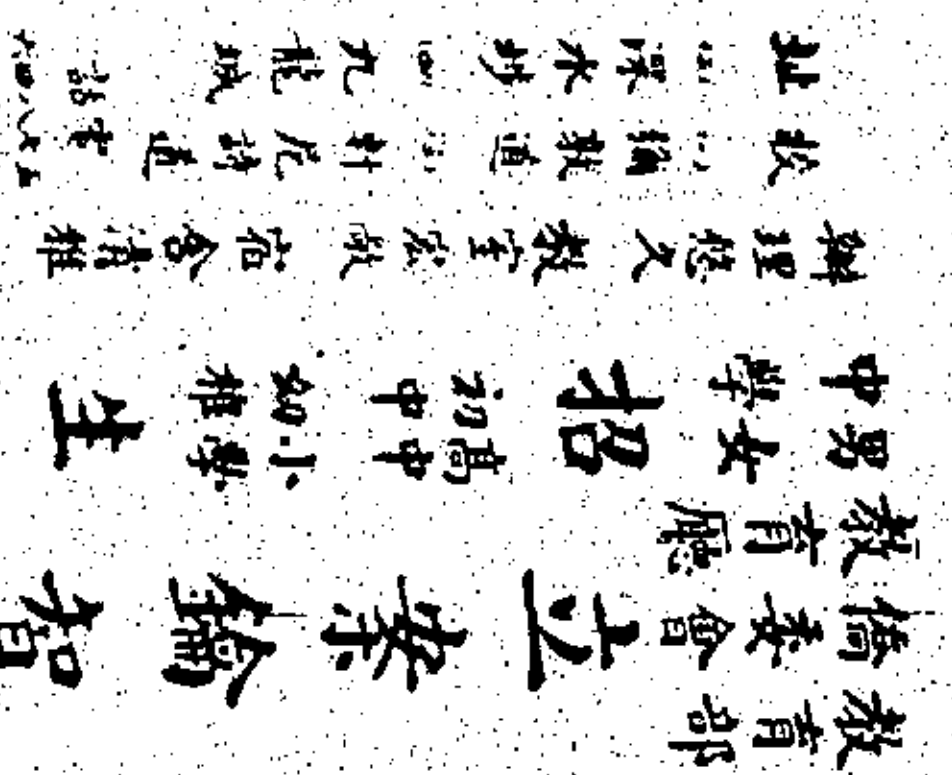 教育部
僑委會
教育廳
立案鑰智
男女
中學
招
高中
初中
小學
幼稚
生
辦理悠久 教室宏敞 宿舍清雅
校址
深水埗
九龍城
電話